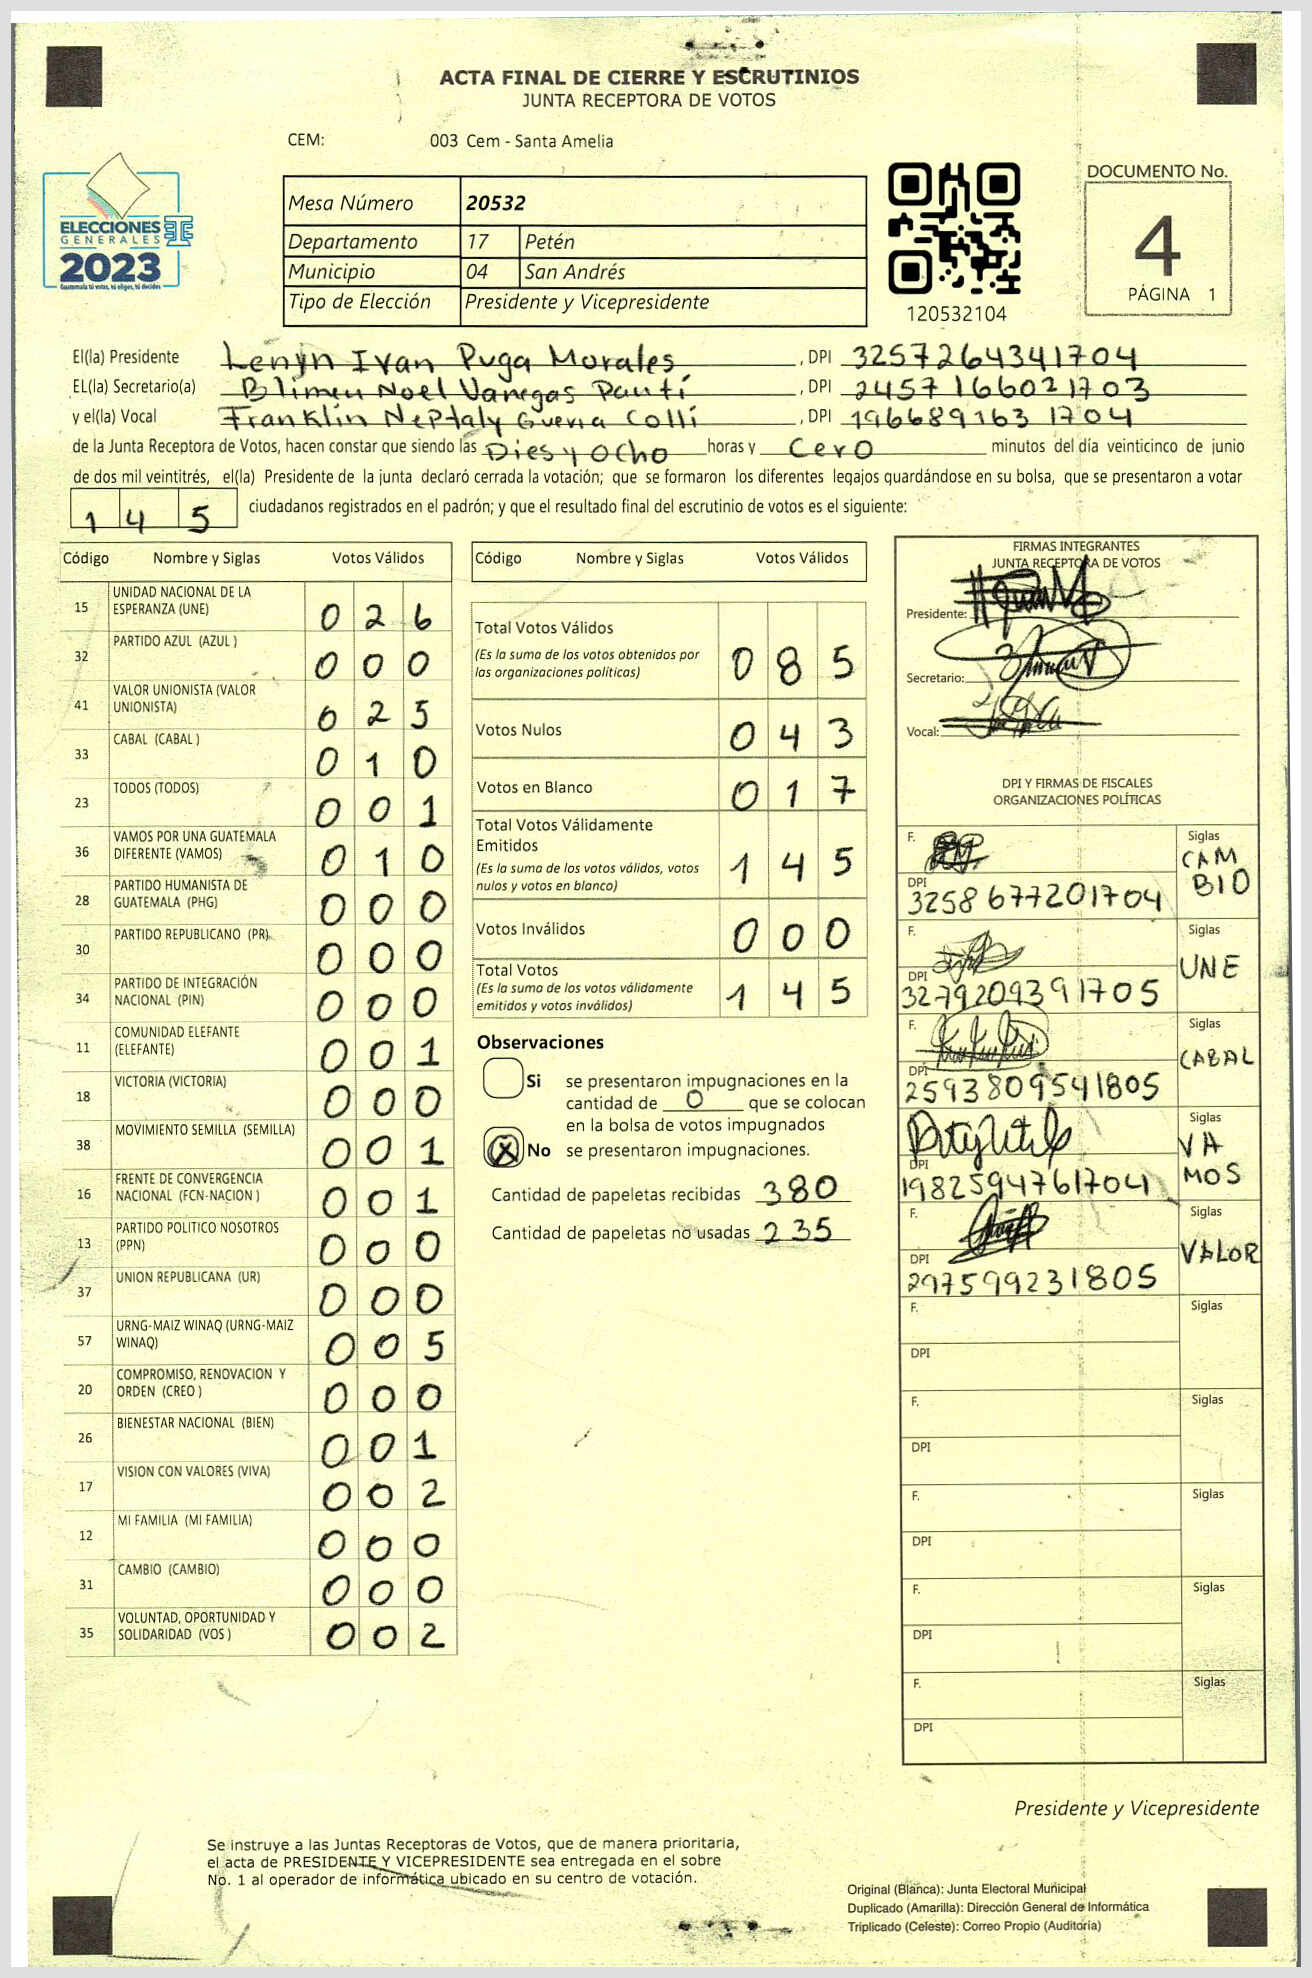 ACTA FINAL DE CIERRE Y ESCRUTINIOS
JUNTA RECEPTORA DE VOTOS
CEM: 003 Cem - Santa Amelia
ELECCIONES
GENERALES
2023
Guatemala tú votas, tú eliges, tú decides
Mesa Número 20532
Departamento 17 Petén
Municipio 04 San Andrés
Tipo de Elección Presidente y Vicepresidente
120532104
DOCUMENTO No.
4
PÁGINA 1
El(la) Presidente Lenyn Ivan Puga Morales, DPI 3257264341704
EL(la) Secretario(a) Blimen Noel Vanegas Pantí, DPI 2457166021703
y el(la) Vocal Franklin Neptaly Guerra Collí, DPI 1966891631704
de la Junta Receptora de Votos, hacen constar que siendo las Dies y Ocho horas y Cero minutos del día veinticinco de junio
de dos mil veintitrés, el(la) Presidente de la junta declaró cerrada la votación; que se formaron los diferentes legajos guardándose en su bolsa, que se presentaron a votar
145 ciudadanos registrados en el padrón; y que el resultado final del escrutinio de votos es el siguiente:
Código Nombre y Siglas Votos Válidos
15 UNIDAD NACIONAL DE LA ESPERANZA (UNE) 026
32 PARTIDO AZUL (AZUL ) 000
41 VALOR UNIONISTA (VALOR UNIONISTA) 025
33 CABAL (CABAL ) 010
23 TODOS (TODOS) 001
36 VAMOS POR UNA GUATEMALA DIFERENTE (VAMOS) 010
28 PARTIDO HUMANISTA DE GUATEMALA (PHG) 000
30 PARTIDO REPUBLICANO (PR) 000
34 PARTIDO DE INTEGRACIÓN NACIONAL (PIN) 000
11 COMUNIDAD ELEFANTE (ELEFANTE) 001
18 VICTORIA (VICTORIA) 000
38 MOVIMIENTO SEMILLA (SEMILLA) 001
16 FRENTE DE CONVERGENCIA NACIONAL (FCN-NACION ) 001
13 PARTIDO POLITICO NOSOTROS (PPN) 000
37 UNION REPUBLICANA (UR) 000
57 URNG-MAIZ WINAQ (URNG-MAIZ WINAQ) 005
20 COMPROMISO, RENOVACION Y ORDEN (CREO ) 000
26 BIENESTAR NACIONAL (BIEN) 001
17 VISION CON VALORES (VIVA) 002
12 MI FAMILIA (MI FAMILIA) 000
31 CAMBIO (CAMBIO) 000
35 VOLUNTAD, OPORTUNIDAD Y SOLIDARIDAD (VOS ) 002
Código Nombre y Siglas Votos Válidos
Total Votos Válidos 085
(Es la suma de los votos obtenidos por
las organizaciones políticas)
Votos Nulos 043
Votos en Blanco 017
Total Votos Válidamente
Emitidos 145
(Es la suma de los votos válidos, votos
nulos y votos en blanco)
Votos Inválidos 000
Total Votos 145
(Es la suma de los votos válidamente
emitidos y votos inválidos)
Observaciones
Si se presentaron impugnaciones en la
cantidad de 0 que se colocan
en la bolsa de votos impugnados
X No se presentaron impugnaciones.
Cantidad de papeletas recibidas 380
Cantidad de papeletas no usadas 235
FIRMAS INTEGRANTES
JUNTA RECEPTORA DE VOTOS
Presidente:
Secretario:
Vocal:
DPI Y FIRMAS DE FISCALES
ORGANIZACIONES POLÍTICAS
F. Siglas CAMBIO
DPI 3258677201704
F. Siglas UNE
DPI 3279209391705
F. Siglas CABAL
DPI 2593809541805
F. Siglas VAMOS
DPI 1982594761704
F. Siglas VALOR
DPI 297599231805
F. Siglas
DPI
F. Siglas
DPI
F. Siglas
DPI
F. Siglas
DPI
F. Siglas
DPI
Presidente y Vicepresidente
Se instruye a las Juntas Receptoras de Votos, que de manera prioritaria,
el acta de PRESIDENTE Y VICEPRESIDENTE sea entregada en el sobre
No. 1 al operador de informática ubicado en su centro de votación.
Original (Blanca): Junta Electoral Municipal
Duplicado (Amarilla): Dirección General de Informática
Triplicado (Celeste): Correo Propio (Auditoría)